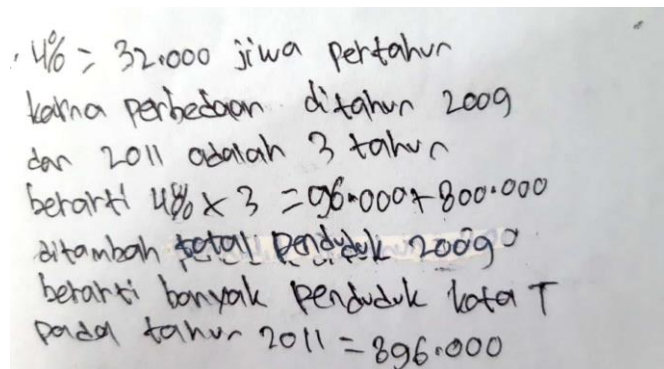 4% = 32.000 jiwa pertahun
karna perbedaan ditahun 2009
dan 2011 adalah 3 tahun
berarti 4% x 3 = 96.000 + 800.000
ditambah total penduduk 2009
berarti banyak penduduk kota T
pada tahun 2011 = 896.000